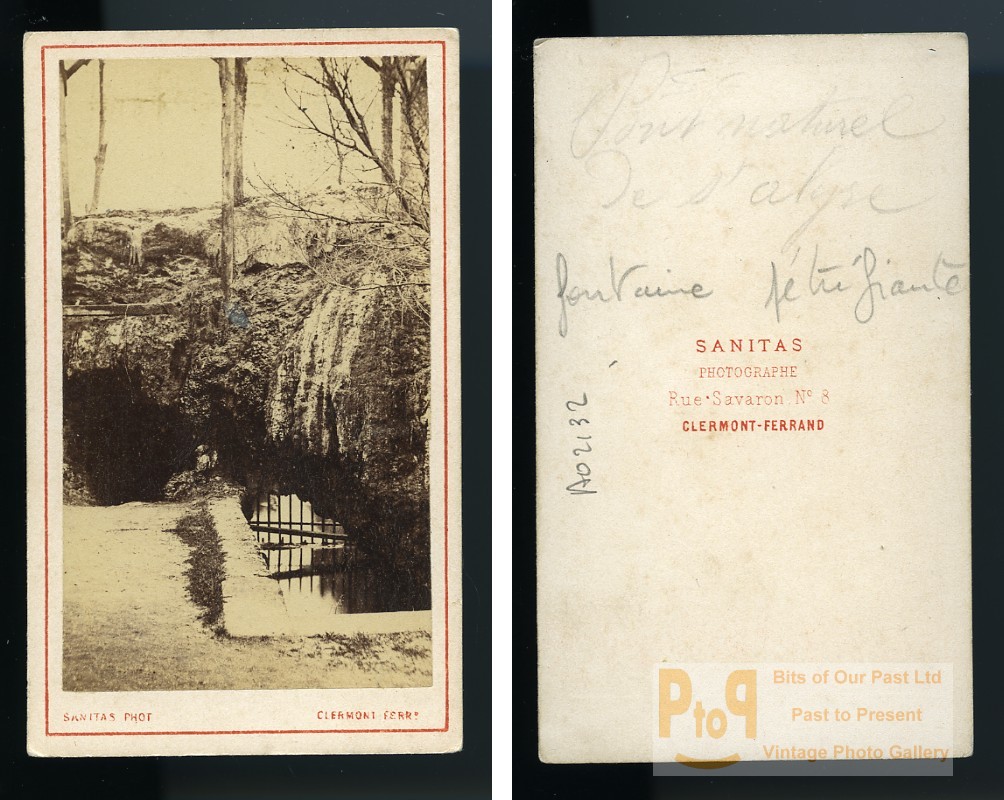 SANITAS PHOT
CLERMONT-FERRD
Pont naturel
De St alyre
fontaine pétrifiante
SANITAS
PHOTOGRAPHE
Rue Savaron No 8
CLERMONT-FERRAND
A02132
PtoP
Bits of Our Past Ltd
Past to Present
Vintage Photo Gallery